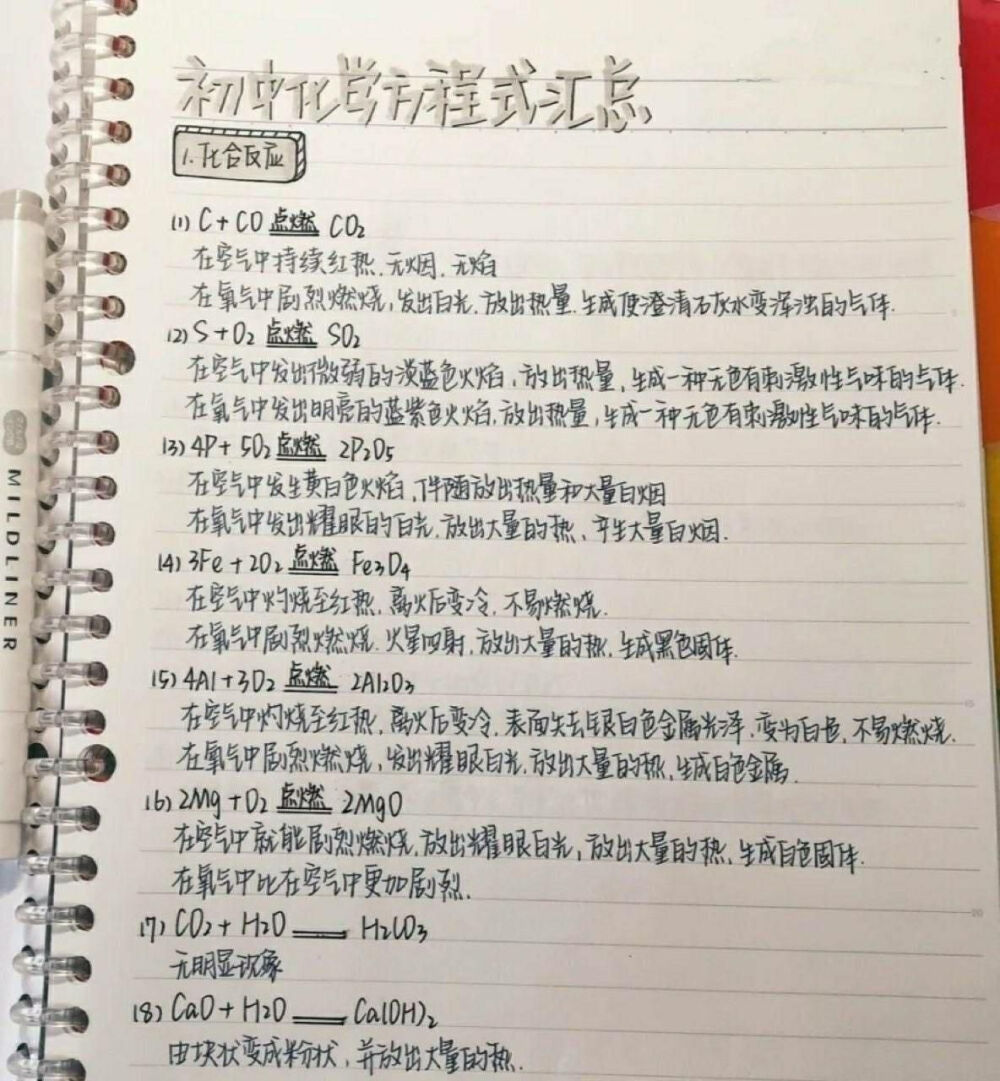 初中化学方程式汇总
1.化合反应
(1) C + CO 点燃 CO₂
在空气中持续红热,无烟,无焰
在氧气中剧烈燃烧,发出白光,放出热量,生成使澄清石灰水变浑浊的气体.
(2) S + O₂ 点燃 SO₂
在空气中发出微弱的淡蓝色火焰,放出热量,生成一种无色有刺激性气味的气体.
在氧气中发出明亮的蓝紫色火焰,放出热量,生成一种无色有刺激性气味的气体.
(3) 4P + 5O₂ 点燃 2P₂O₅
在空气中发生黄白色火焰,伴随放出热量和大量白烟
在氧气中发出耀眼的白光,放出大量的热,产生大量白烟.
(4) 3Fe + 2O₂ 点燃 Fe₃O₄
在空气中灼烧至红热,离火后变冷,不易燃烧.
在氧气中剧烈燃烧,火星四射,放出大量的热,生成黑色固体.
(5) 4Al + 3O₂ 点燃 2Al₂O₃
在空气中灼烧至红热,离火后变冷,表面失去银白色金属光泽,变为白色,不易燃烧.
在氧气中剧烈燃烧,发出耀眼白光,放出大量的热,生成白色金属.
(6) 2Mg + O₂ 点燃 2MgO
在空气中就能剧烈燃烧,放出耀眼白光,放出大量的热,生成白色固体.
在氧气中比在空气中更加剧烈.
(7) CO₂ + H₂O ══ H₂CO₃
无明显现象
(8) CaO + H₂O ══ Ca(OH)₂
由块状变成粉状,并放出大量的热.
MILDLINER